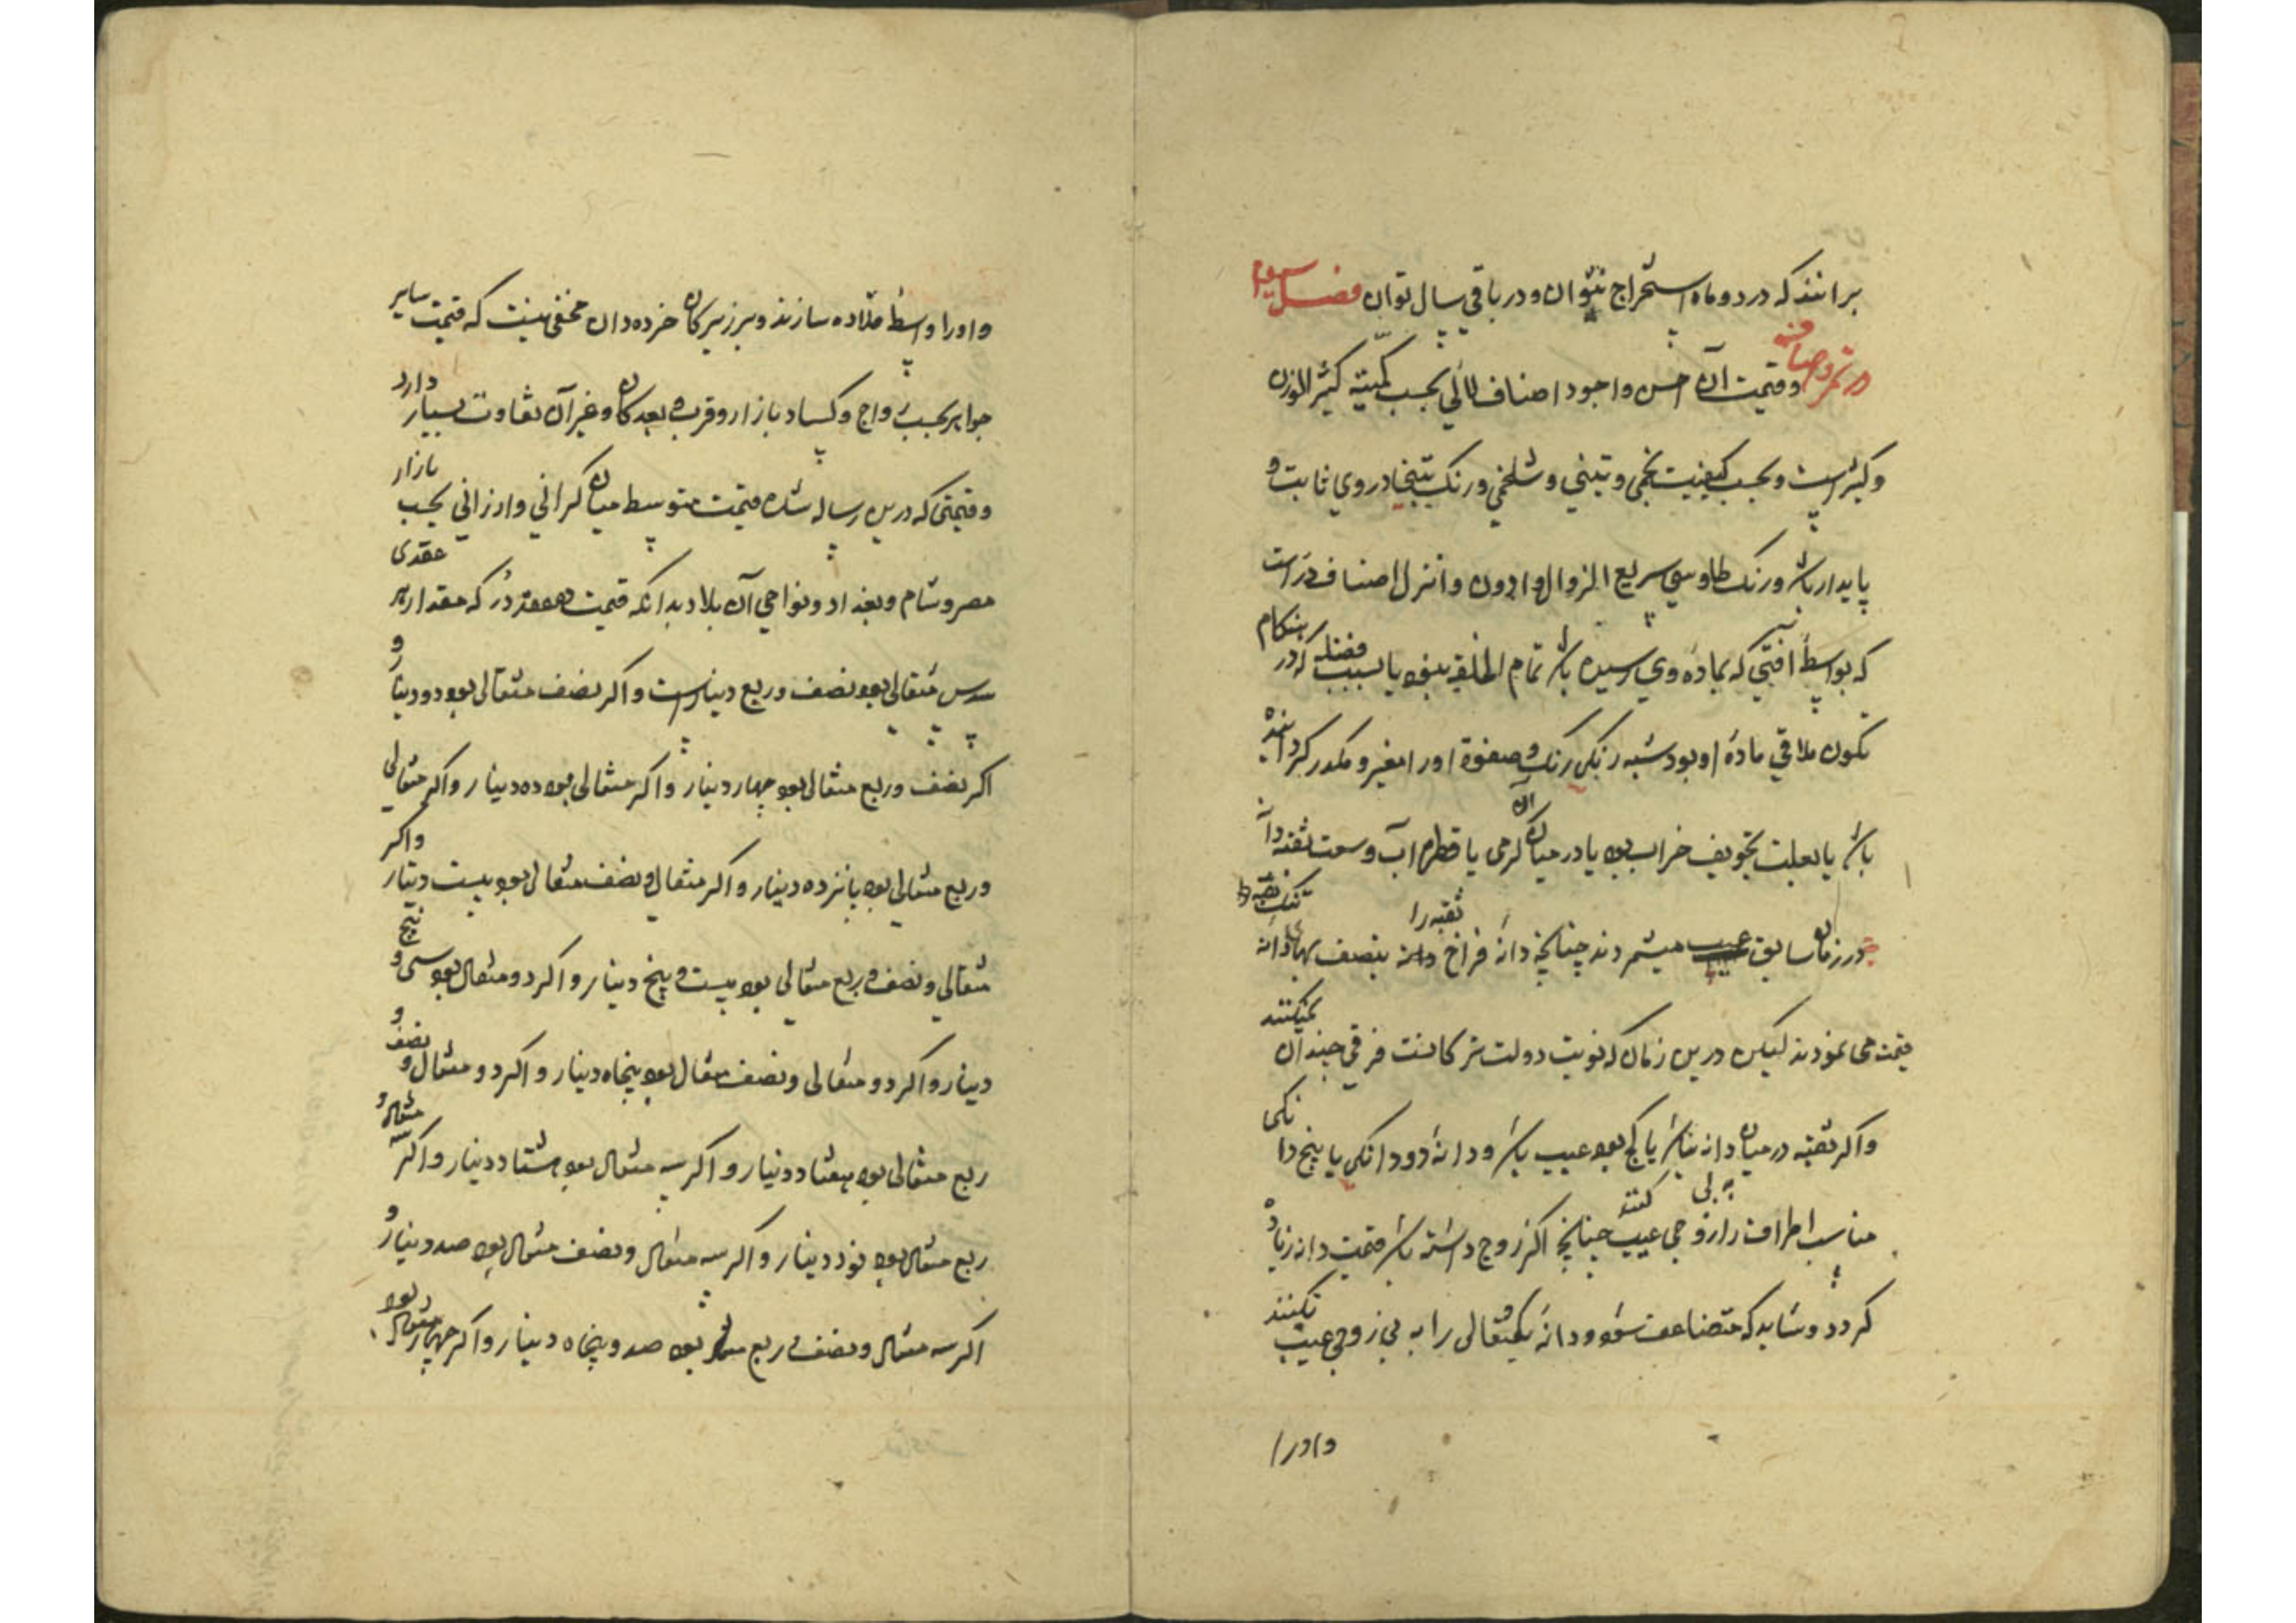 برانند که در دو ماه استخراج نتوان و در باقی سال توان فصل سیوم
در قیمت آن احسن و اجود اصناف لآلی بحسب کمیّته کثیر الوزن
و کبیر است و بحسب کیفیت نجمی و تبنی و شلغمی و رنک در وی ثابت و
پایدار باشد و رنک طاوسی سریع الزوال و ادون و انزل اصناف در است
که بواسطهٔ افتی که بمادهٔ وی رسیده باشد تمام الخلقه نبود یا بسبب فضله که در هنکام
تکون ملاقی مادهٔ او بود شبه رنکی رنک و صفوة او را متغیر و مکدر کردانیده
باشد یا بعلت تجویف خراب بود یا در میان آن کرمی یا قطره آب وسعت ثقبه دانه
در زمان سابق عیب میشمردند چنانچه دانهٔ فراخ ثقبه را بنصف بهای دانه تنک ثقبه
قیمت می نمودند لیکن درین زمان که نوبت دولت ترکانست فرقی چندان نمیکنند
و اکر ثقبه در میان دانه نباشد یا کج بود عیب باشد و دانهٔ دو دانکی یا پنج دانکی
مناسب اطراف را زوجی عیب کنند چنانچه اکر زوج داشته باشد قیمت دانه زیاده
کردد و شاید که متضاعف شود و دانهٔ یکمثقالی را به بی زوجی عیب نکنند
و او را
و او را واسطهٔ قلاده سازند و بر زیرکان خرده دان مخفی نیست که قیمت سایر
جواهر بحسب رواج و کساد بازار و قرب و بعد کان و غیر آن تفاوت بسیار دارد
و قیمتی که درین رساله شده قیمت متوسط میان کرانی و ارزانی بحسب بازار
مصر و شام و بغداد و نواحی آن بلاد بدانکه قیمت عقدی در که مقدار هر
سدس مثقالی بود نصف و ربع دینار است و اکر نصف مثقالی بود دو دینار و
اکر نصف و ربع مثقالی بود چهار دینار و اکر مثقالی بود ده دینار و اکر مثقالی
و ربع مثقالی بود پانزده دینار و اکر مثقالی و نصف مثقالی بود بیست دینار و اکر
مثقالی و نصف و ربع مثقالی بود بیست و پنج دینار و اکر دو مثقال بود سی و پنج
دینار و اکر دو مثقالی و نصف مثقال بود پنجاه دینار و اکر دو مثقال و نصف و
ربع مثقالی بود هفتاد دینار و اکر سه مثقال بود هشتاد دینار و اکر سه مثقال و
ربع مثقال بود نود دینار و اکر سه مثقال و نصف مثقال بود صد دینار و
اکر سه مثقال و نصف و ربع مثقال بود صد و پنجاه دینار و اکر چهار مثقال بود